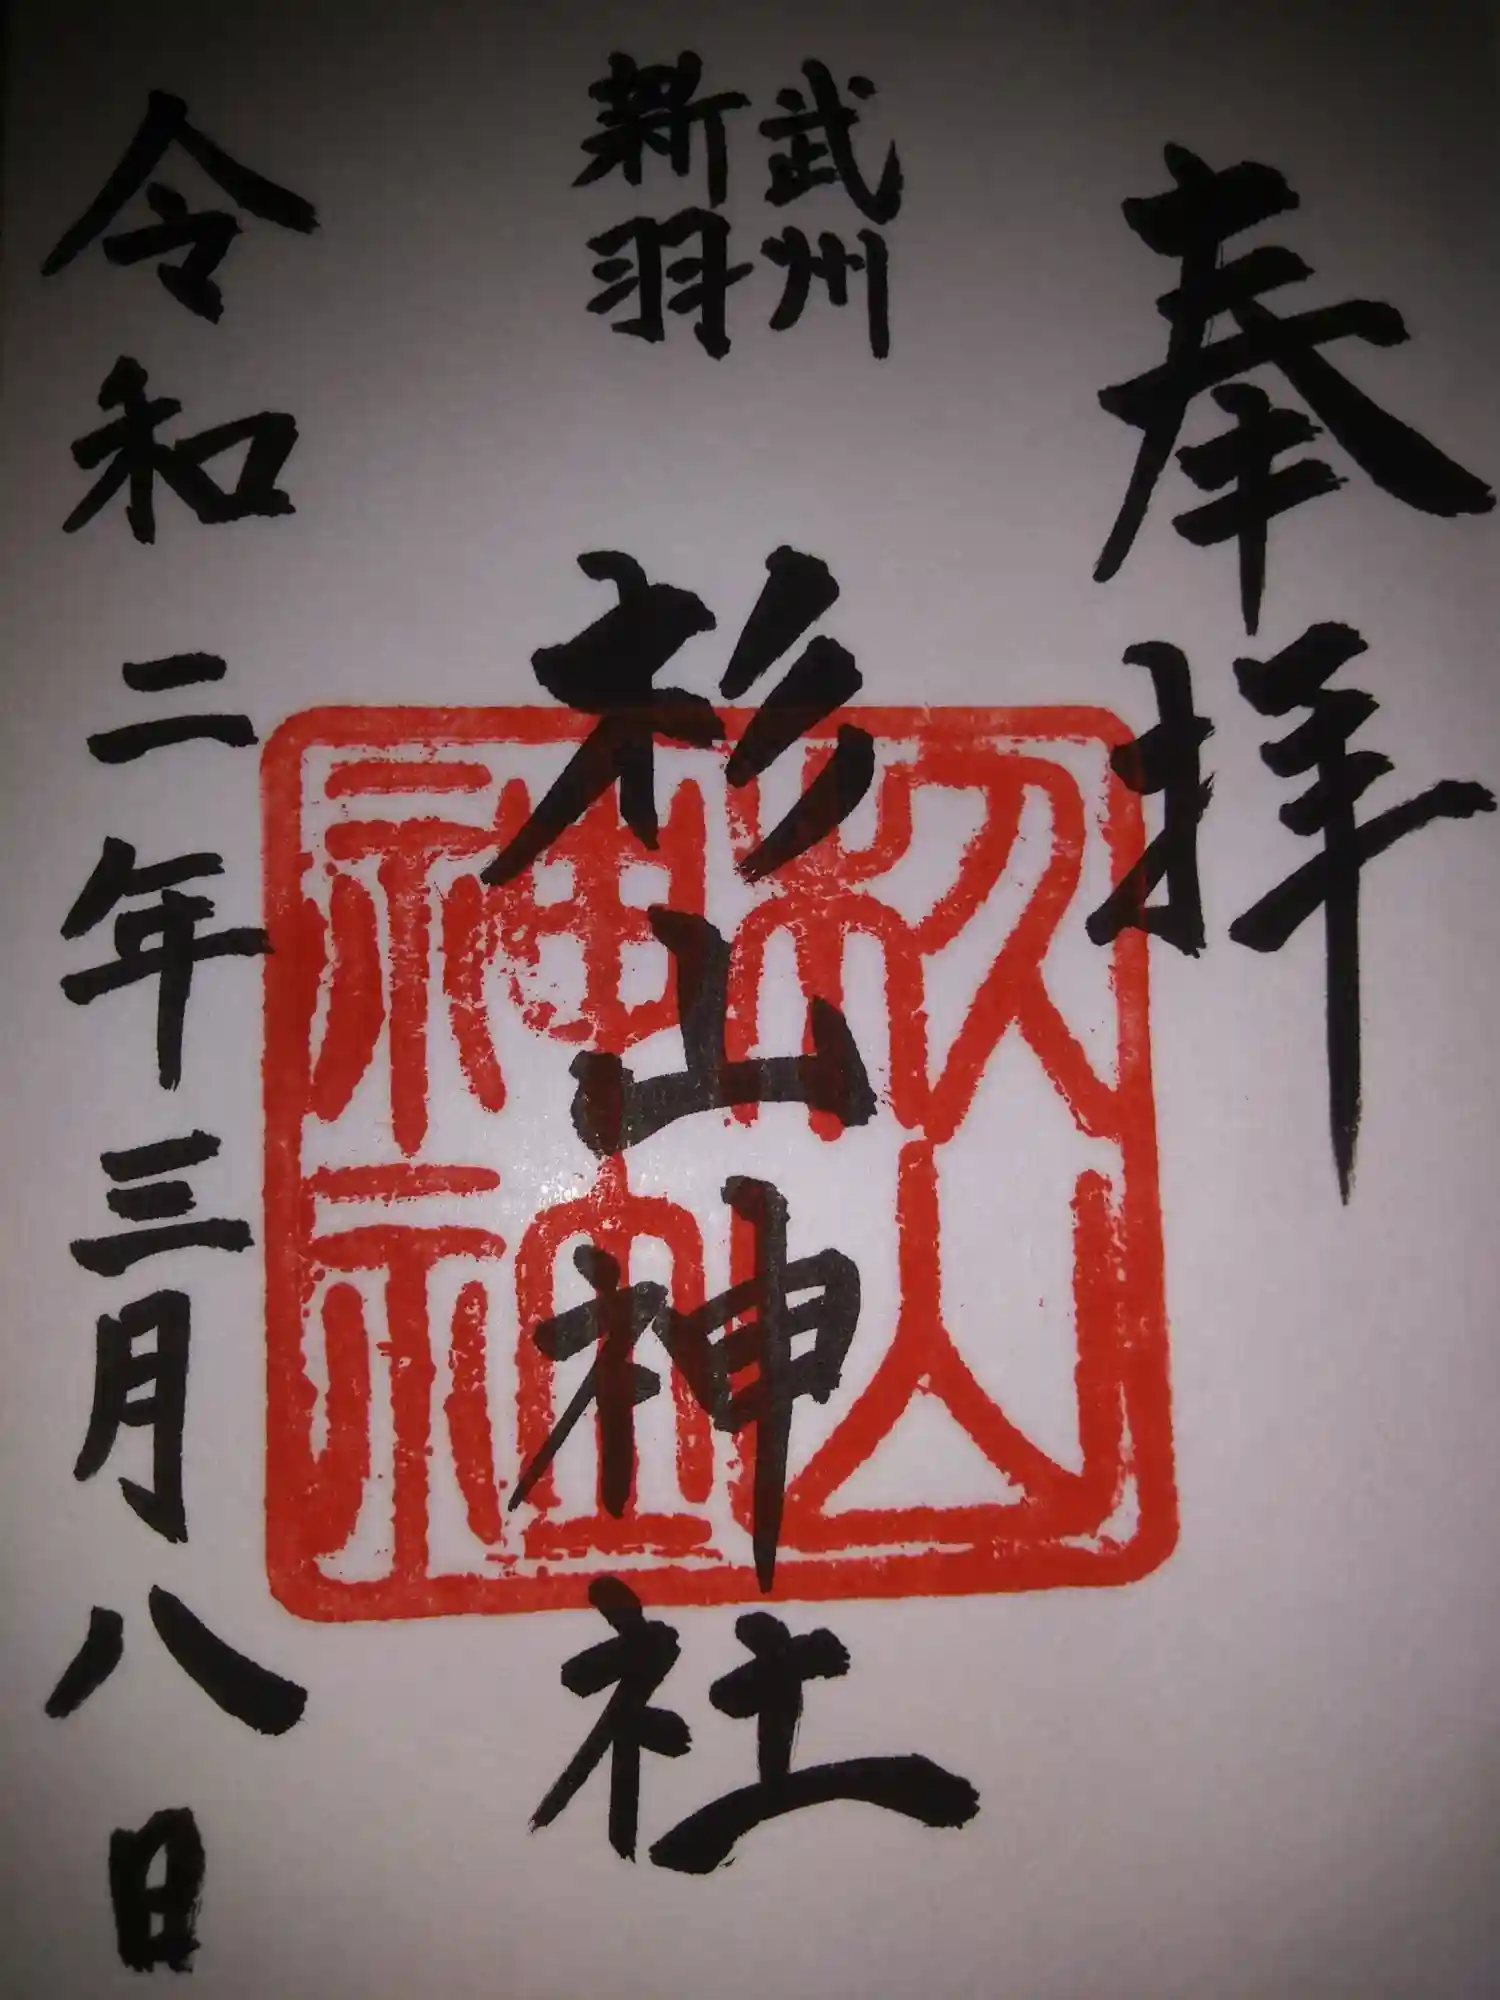 奉拝
武州
新羽
杉山神社
令和二年三月八日